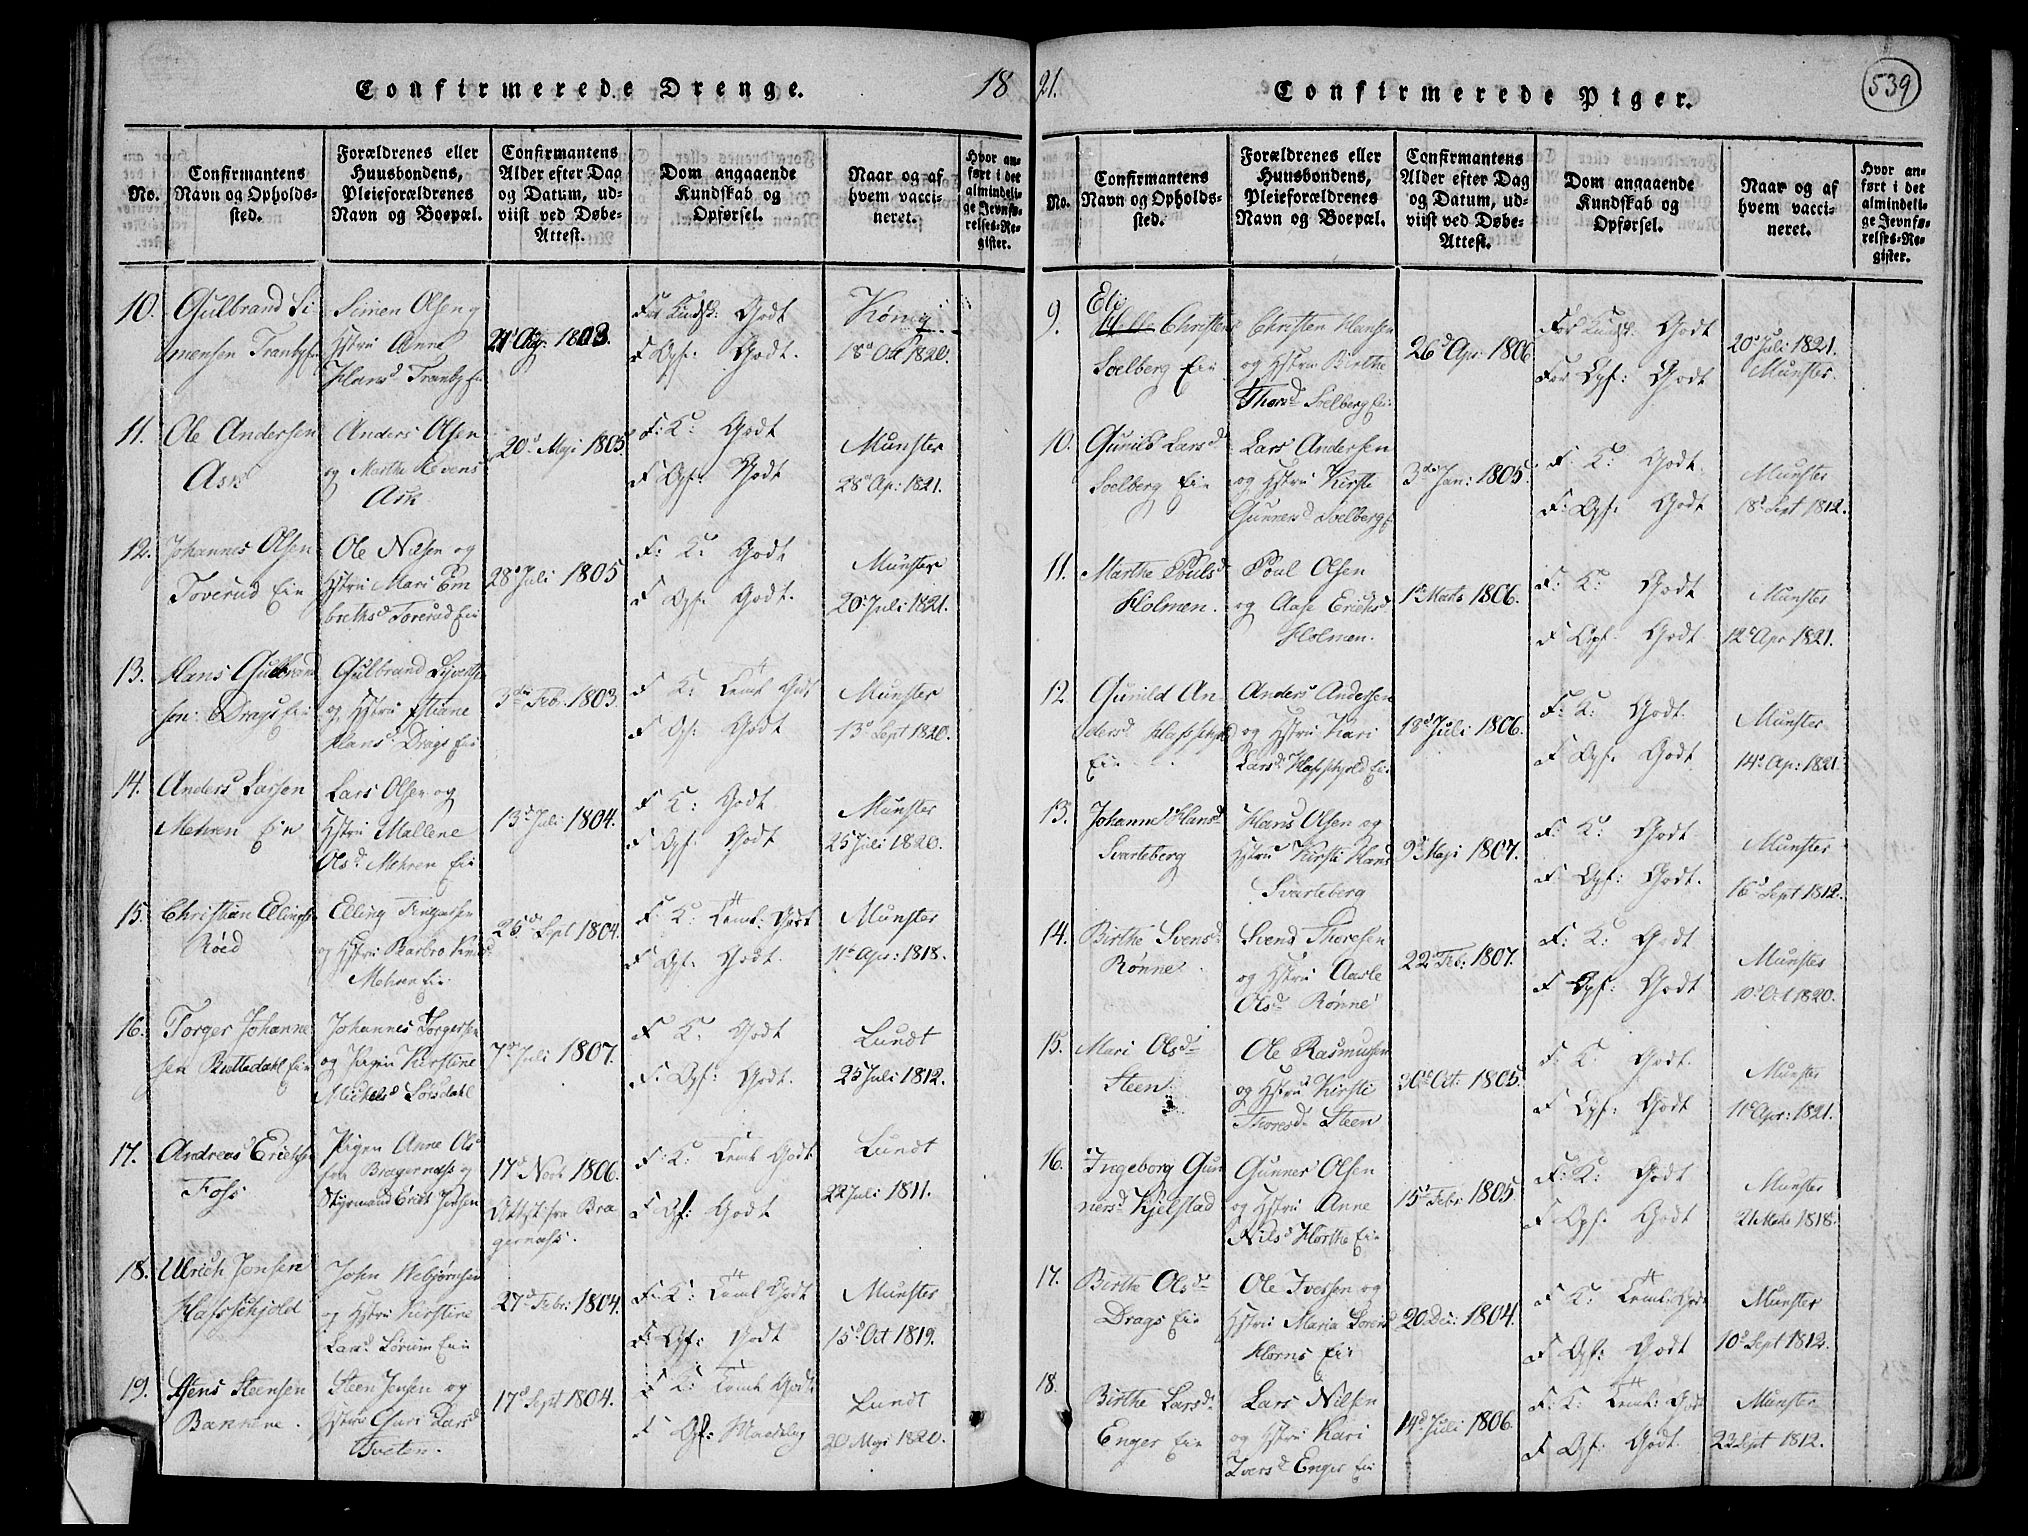 Confirmerede Drenge.
18
No.
Confirmantens
Navn og Opholds-
sted.
Forældrenes eller
Huusbondens,
Pleieforældrenes
Navn og Boepæl.
Confirmantens
Alder efter Dag
og Datum, ud-
viist ved Døbe-
Attest.
Dom angaaende
Kundskab og
Opførsel.
Naar og af
hvem vacci-
neret.
Hvor an-
ført i det
almindeli-
ge Jevnfø-
relses-Re-
gister.
10.
Gulbrand Si
mensen Tranby Eie
Simen Olsen og
Hstru Anne
Hans d Tranby Eie
1803.
For Kundsk: Godt
F. Opf: Godt.
König
18 d Oct 1820.
11.
Ole Andersen
Ask
Anders Olsen
og Marthe Evens
Ask
20 d Maji 1805
F: K: Godt
F Opf: Godt
Munster
28 d Ap: 1821.
12.
Johannes Olsen
Toverud Eie
Ole Nilsen og
Hstru Mari Em
breths d Toverud Eie
28 d Juli 1805
F: K: Godt
F Opf: Godt.
Munster
20 d Juli 1821.
13.
Hans Gulbrand
sen Drags Eie
Gulbrand
og Hstru
Hans d Drags Eie
3 die Feb. 1803.
F K: Teml Godt
F Opf: Godt
Munster
13 d Sept 1820.
14.
Anders Larsen
Mehren Eie
Lars Olsen og
Hstru Mallene
Ols d Mehren Eie
13 d Juli 1804.
F K: Godt
F Opf: Godt
Munster
25 Juli 1820.
15.
Christian Ellings
Röed
Elling
og Hstru Barbro Knud
Mehren Eie
25 de Sept 1804.
F: K: Teml: Godt
F Opf. Godt.
Munster
11 d Apr: 1818.
16.
Torger Johanne
sen Eie
Johannes Torgersen
og Pigen Kirstine
Michels d
7 d Juli 1807.
F K: Godt
F: Opf: Godt.
Lundt
25 Juli 1812.
17.
Andreas Ericksen
Foss
Pigen Anne Ols
fra Bragernæss og
Styrmand Erict Jensen
17 d Nov 1806.
Attst fra Bra
gernæss.
F: K: Teml Godt
F Opf: Godt
Lundt
22 Juli 1811.
18.
Ulrich Jonsen
Hassehjold
John Webjørnsen
og Hstru Kirstine
Lars d Sørum Eie
27 d Feb: 1804.
F: K: Teml Godt
F Opf: Godt
Munster
15 d Oct 1819.
19.
Jens Steensen
Bakkene.
Steen Jensen og
Hstru Guri Lars d
Tveten.
17 d Sept 1804.
F K: Teml Godt
F Opf: Maadelig
Lundt
20 Maji 1820.
21.
Confirmerede Piger.
539
No.
Confirmantens
Navn og Opholds-
sted.
Forældrenes eller
Huusbondens,
Pleieforældrenes
Navn og Boepæl.
Confirmantens
Alder efter Dag
og Datum, ud-
viist ved Døbe-
Attest.
Dom angaaende
Kundskab og
Opførsel.
Naar og af
hvem vacci-
neret.
Hvor an-
ført i det
almindeli-
ge Jevnfø-
relses-Re-
gister.
9.
Eli
Christens
Solberg Eie
Christen Hansen
og Hstru Birthe
Thors d Solberg Eie
26 d Ap: 1806
For Kundsk: Godt
For Opf: Godt
20 d Juli 1821.
Munster.
10.
Gunild Lars d
Solberg Eie
Lars Andersen
og Hstru Kirsti
Gunners d Solberg E
3 die Jan: 1805.
F: K: Godt.
F: Opf: Godt
Munster
18 d Sept 1812.
11.
Marthe Pouls d
Holmen.
Poul Olsen
og Aase Ericks d
Holmen.
1 ste Marts 1806.
F: K: Godt
F Opf. Godt
Munster
12 d Apr 1821.
12
Gunild An
ders d Hassehjold
Eie
Anders Andersen
og Hstru Kari
Lars d Hassehjold Eie
18 d Juli 1806.
F: K: Godt.
F Opf: Godt
Munster
14 d Ap: 1821
13.
Johanne Hans d
Svarteberg
Hans Olsen og
Hstru Kirsti Hans
Svarteberg
9 d Maji 1807.
F: K: Godt
F: Opf: Godt.
Munster
16 d Sept 1812.
14.
Birthe Svens d
Rönne.
Svend Thoresen
og Hstru Aasle
Ols d Rönne
22 d Feb: 1807.
F: K: Godt
F Opf: Godt
Munster
10 d Oct 1820.
15.
Mari Ols d
Steen
Ole Rasmusen
og Hstru Kirsti
Thores d Steen
30 d Oct: 1805.
F: K: Godt.
F Opf: Godt
Munster
11 d Apr: 1821.
16.
Ingeborg Gun
ners d Kjelstad
Gunner Olsen
og Hstru Anne
Nils d Horthe Eie
15 d Feb: 1805
F: K: Godt
F Opf: Godt
Munster
21 Mai 1818.
17.
Birthe Ols d
Drags Eie
Ole Iversen og
Hstru Maria Sörens d
Horns Eie
20 Dec: 1804.
F K: Teml: Godt
F Opf: Godt
Munster
10 d Sept 1812.
18.
Birthe Lars d
Enger Eie
Lars Nilsen
og Hstru Kari
Ivers d Enger Eie
14 d Juli 1806.
F: K: Teml: Godt
F Opf: Godt.
Munster
23 Sept 1812.